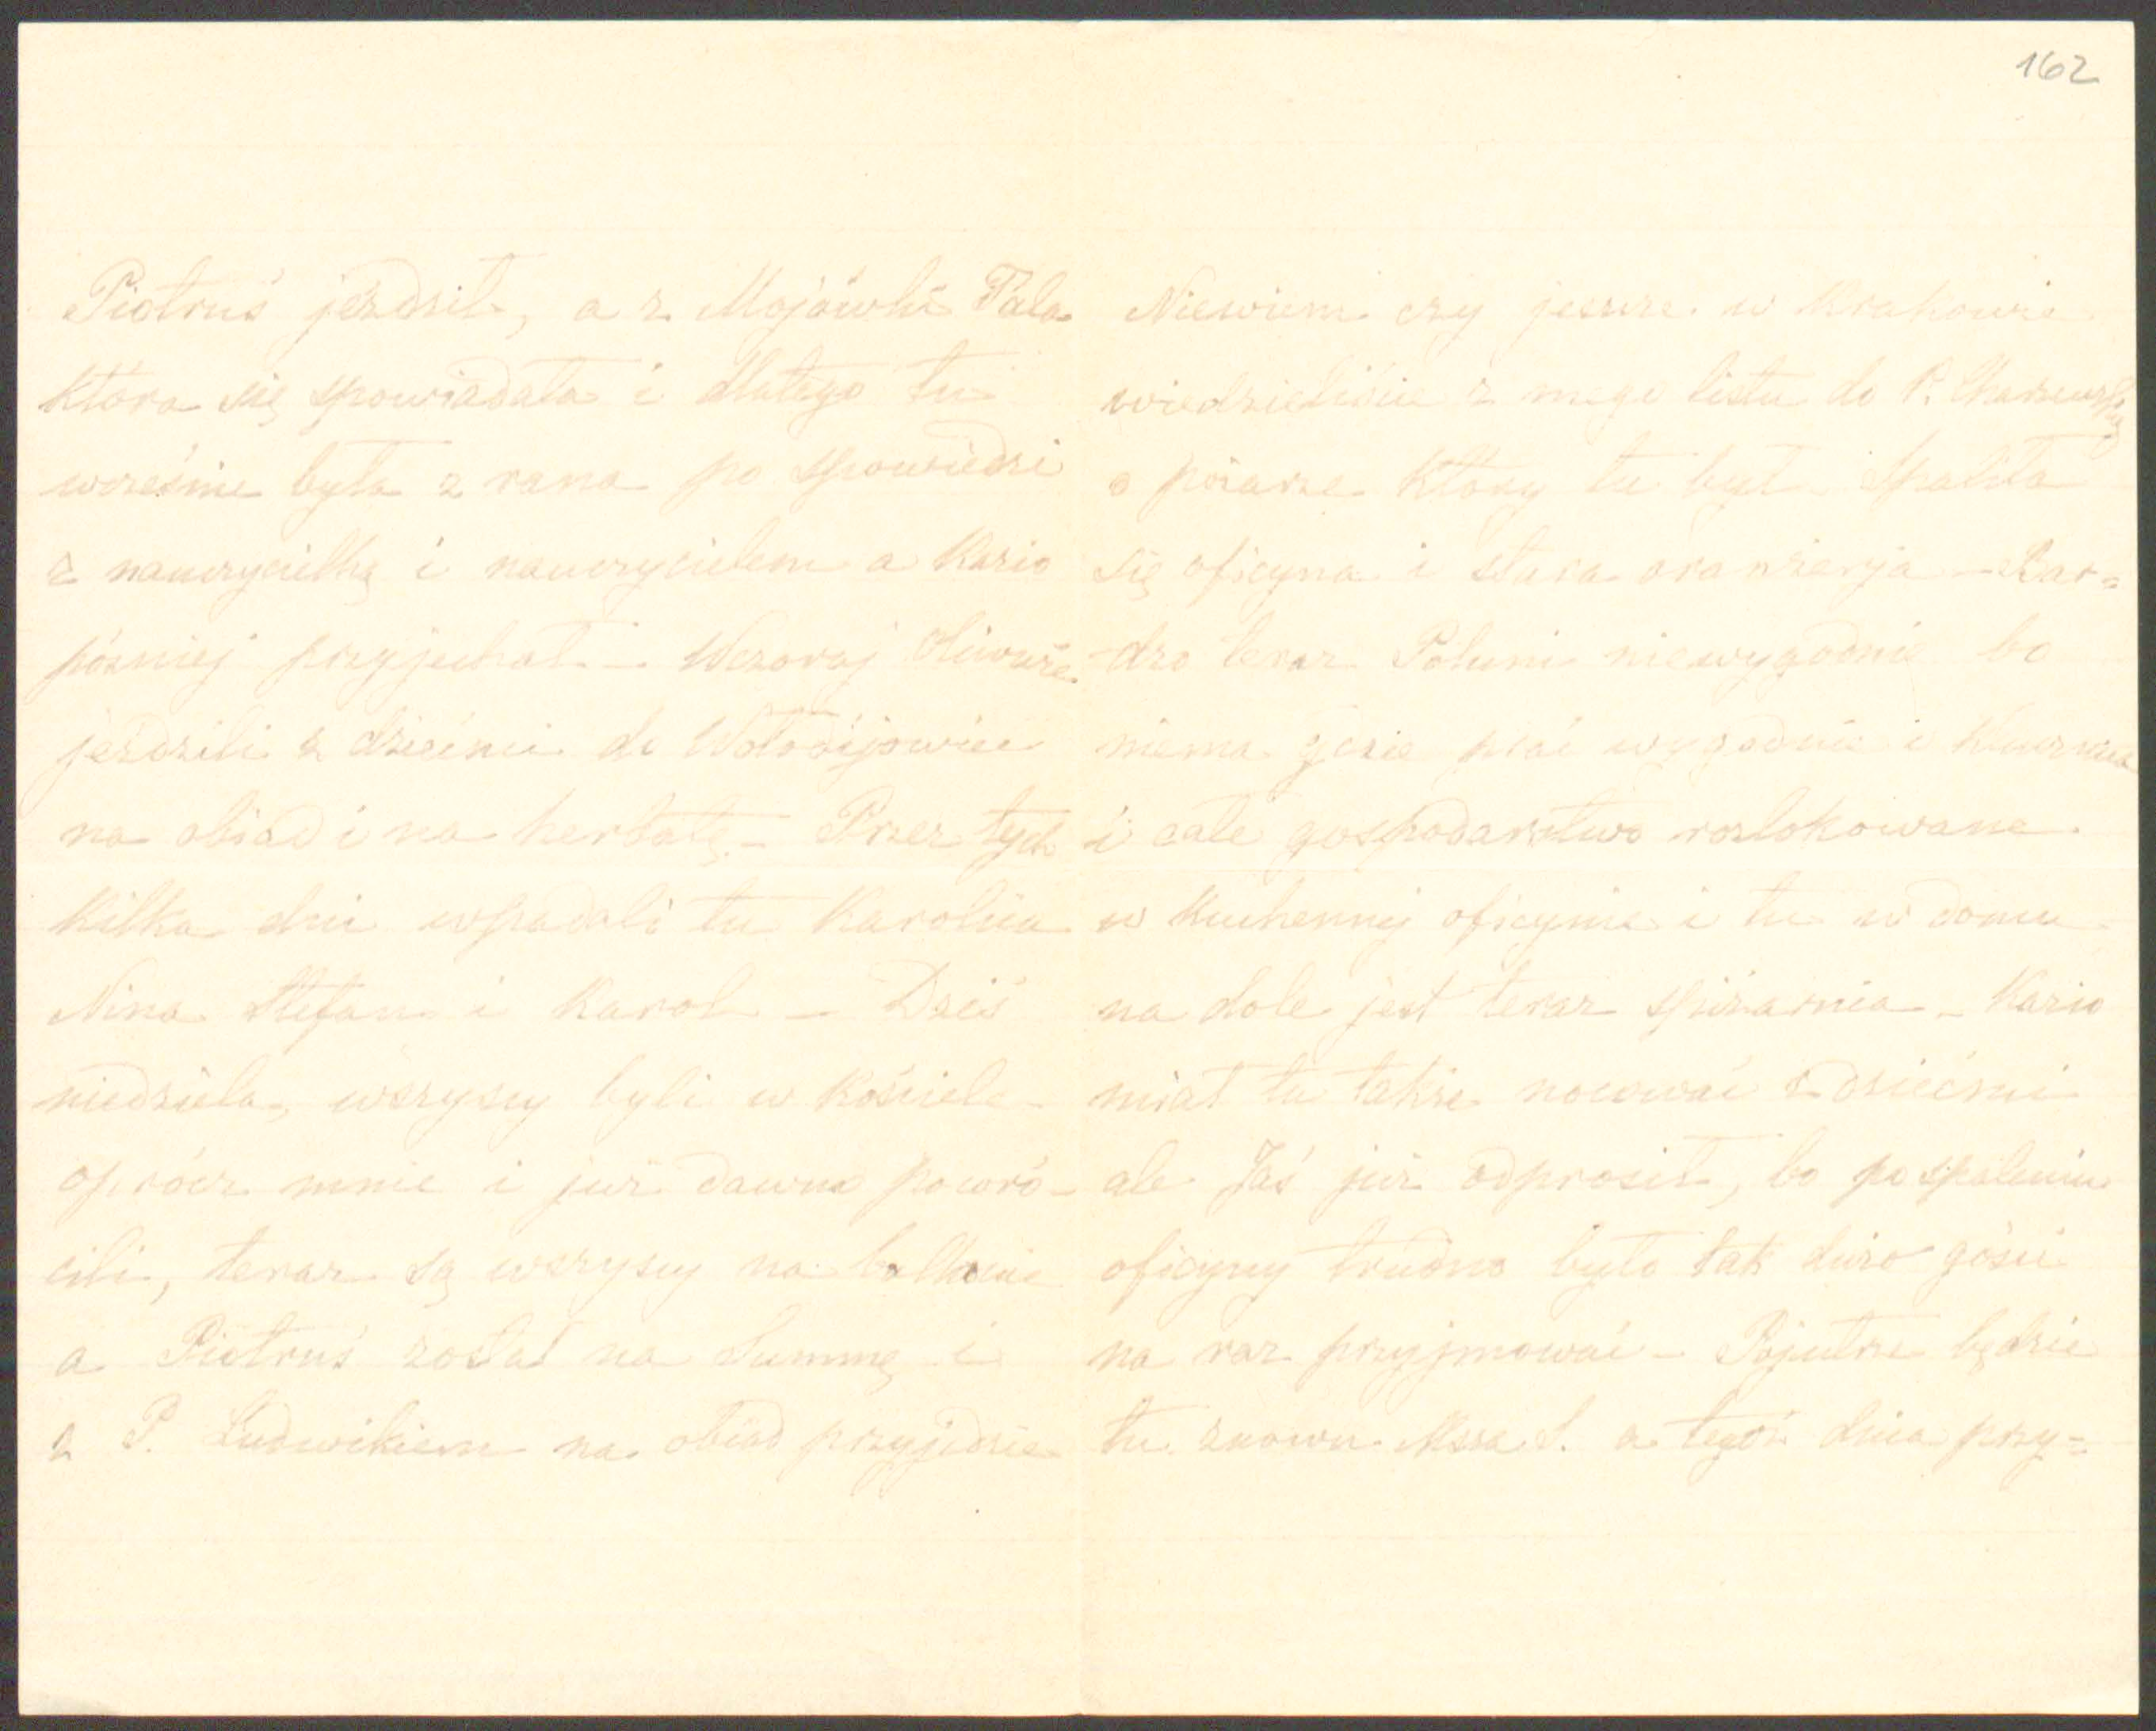 162
Piotruś jeździł, a z Majówki Fala
która się spowiadała i dlatego tu
wcześnie była z rana po spowiedzi
z nauczycielką i nauczycielem a Kazio
później przyjechał – Wczoraj
jeździli z dziećmi do Wołodijowiec
na obiad i na herbatę. – Przez tych
kilka dni wpadali tu Karolcia
Nina Stefan i Karol – Dziś
niedziela, wszyscy byli w Kościele
oprócz mnie i już dawno powró-
cili, teraz są wszyscy na balkonie
a Piotruś został na Summę i
z P. Ludwikiem na obiad przyjedzie
Niewiem czy jeszcze w Krakowie
wiedzieliście z mego listu do P.
o pożarze który tu był. Spaliła
się oficyna i stara oranżerya – Bar=
-dzo teraz Poluni niewygodnie bo
niema gdzie prać wygodnie i
i całe gospodarstwo rozlokowane
w kuchennej oficynie i tu w domu
na dole jest teraz spiżarnia – Kazio
miał tu także nocować z dziećmi
ale Jaś już odprosił, bo po spaleniu
oficyny trudno było tak dużo gości
na raz przyjmować – Pojutrze będzie
tu znowu Msza Ś. a tegoż dnia przy=